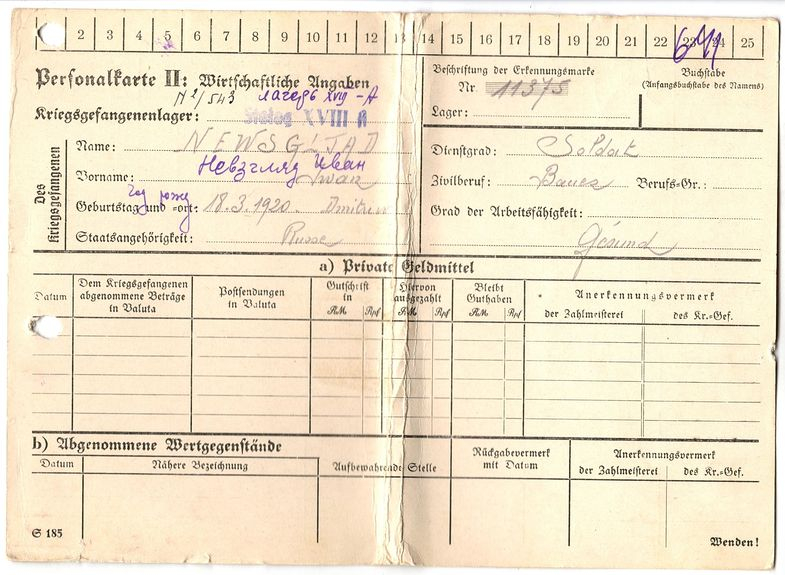 2 3 4 5 6 7 8 9 10 11 12 13 14 15 16 17 18 19 20 21 22 23 24 25
644
Personalkarte II: Wirtschaftliche Angaben
N 2/543 лагерь XVIII-A
Kriegsgefangenenlager: Stalag XVIII A
Beschriftung der Erkennungsmarke
Nr. 11375
Lager:
Buchstabe
(Anfangsbuchstabe des Namens)
Des Kriegsgefangenen
Name: NEWSGLJAD
Невзгляд Иван
Vorname: Iwan
год рожд
Geburtstag und -ort: 18.3.1920. Dmitrun
Staatsangehörigkeit: Russe
Dienstgrad: Soldat
Zivilberuf: Bauer Berufs-Gr.:
Grad der Arbeitsfähigkeit:
Gesund
a) Private Geldmittel
Datum
Dem Kriegsgefangenen abgenommene Beträge in Valuta
Postsendungen in Valuta
Gutschrift in
RM Rpf
Hiervon ausgezahlt
RM Rpf
Bleibt Guthaben
RM Rpf
Anerkennungsvermerk
der Zahlmeisterei des Kr.-Gef.
b) Abgenommene Wertgegenstände
Datum
Nähere Bezeichnung
Aufbewahrende Stelle
Rückgabevermerk mit Datum
Anerkennungsvermerk
der Zahlmeisterei des Kr.-Gef.
S 185
Wenden!